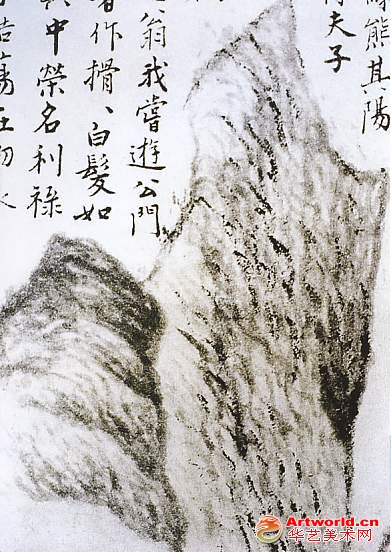 熊其陽
夫子
翁我嘗遊公門
作搰、白髮如
中榮名利祿
蕩在
Artworld.cn
华艺美术网